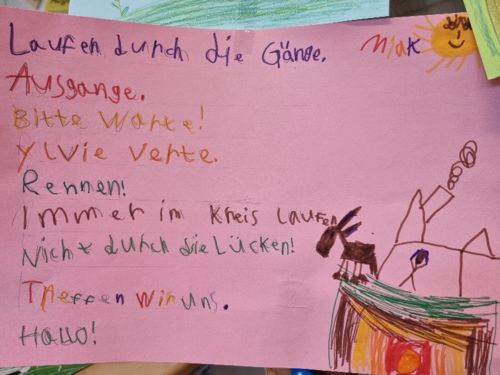 Laufen durch die Gänge.
Mak
Ausgange.
Bitte Warte!
Ylvie Verte.
Rennen!
Immer im Kreis Laufen
Nicht durch die Lücken!
Treffen wir uns.
Hallo!